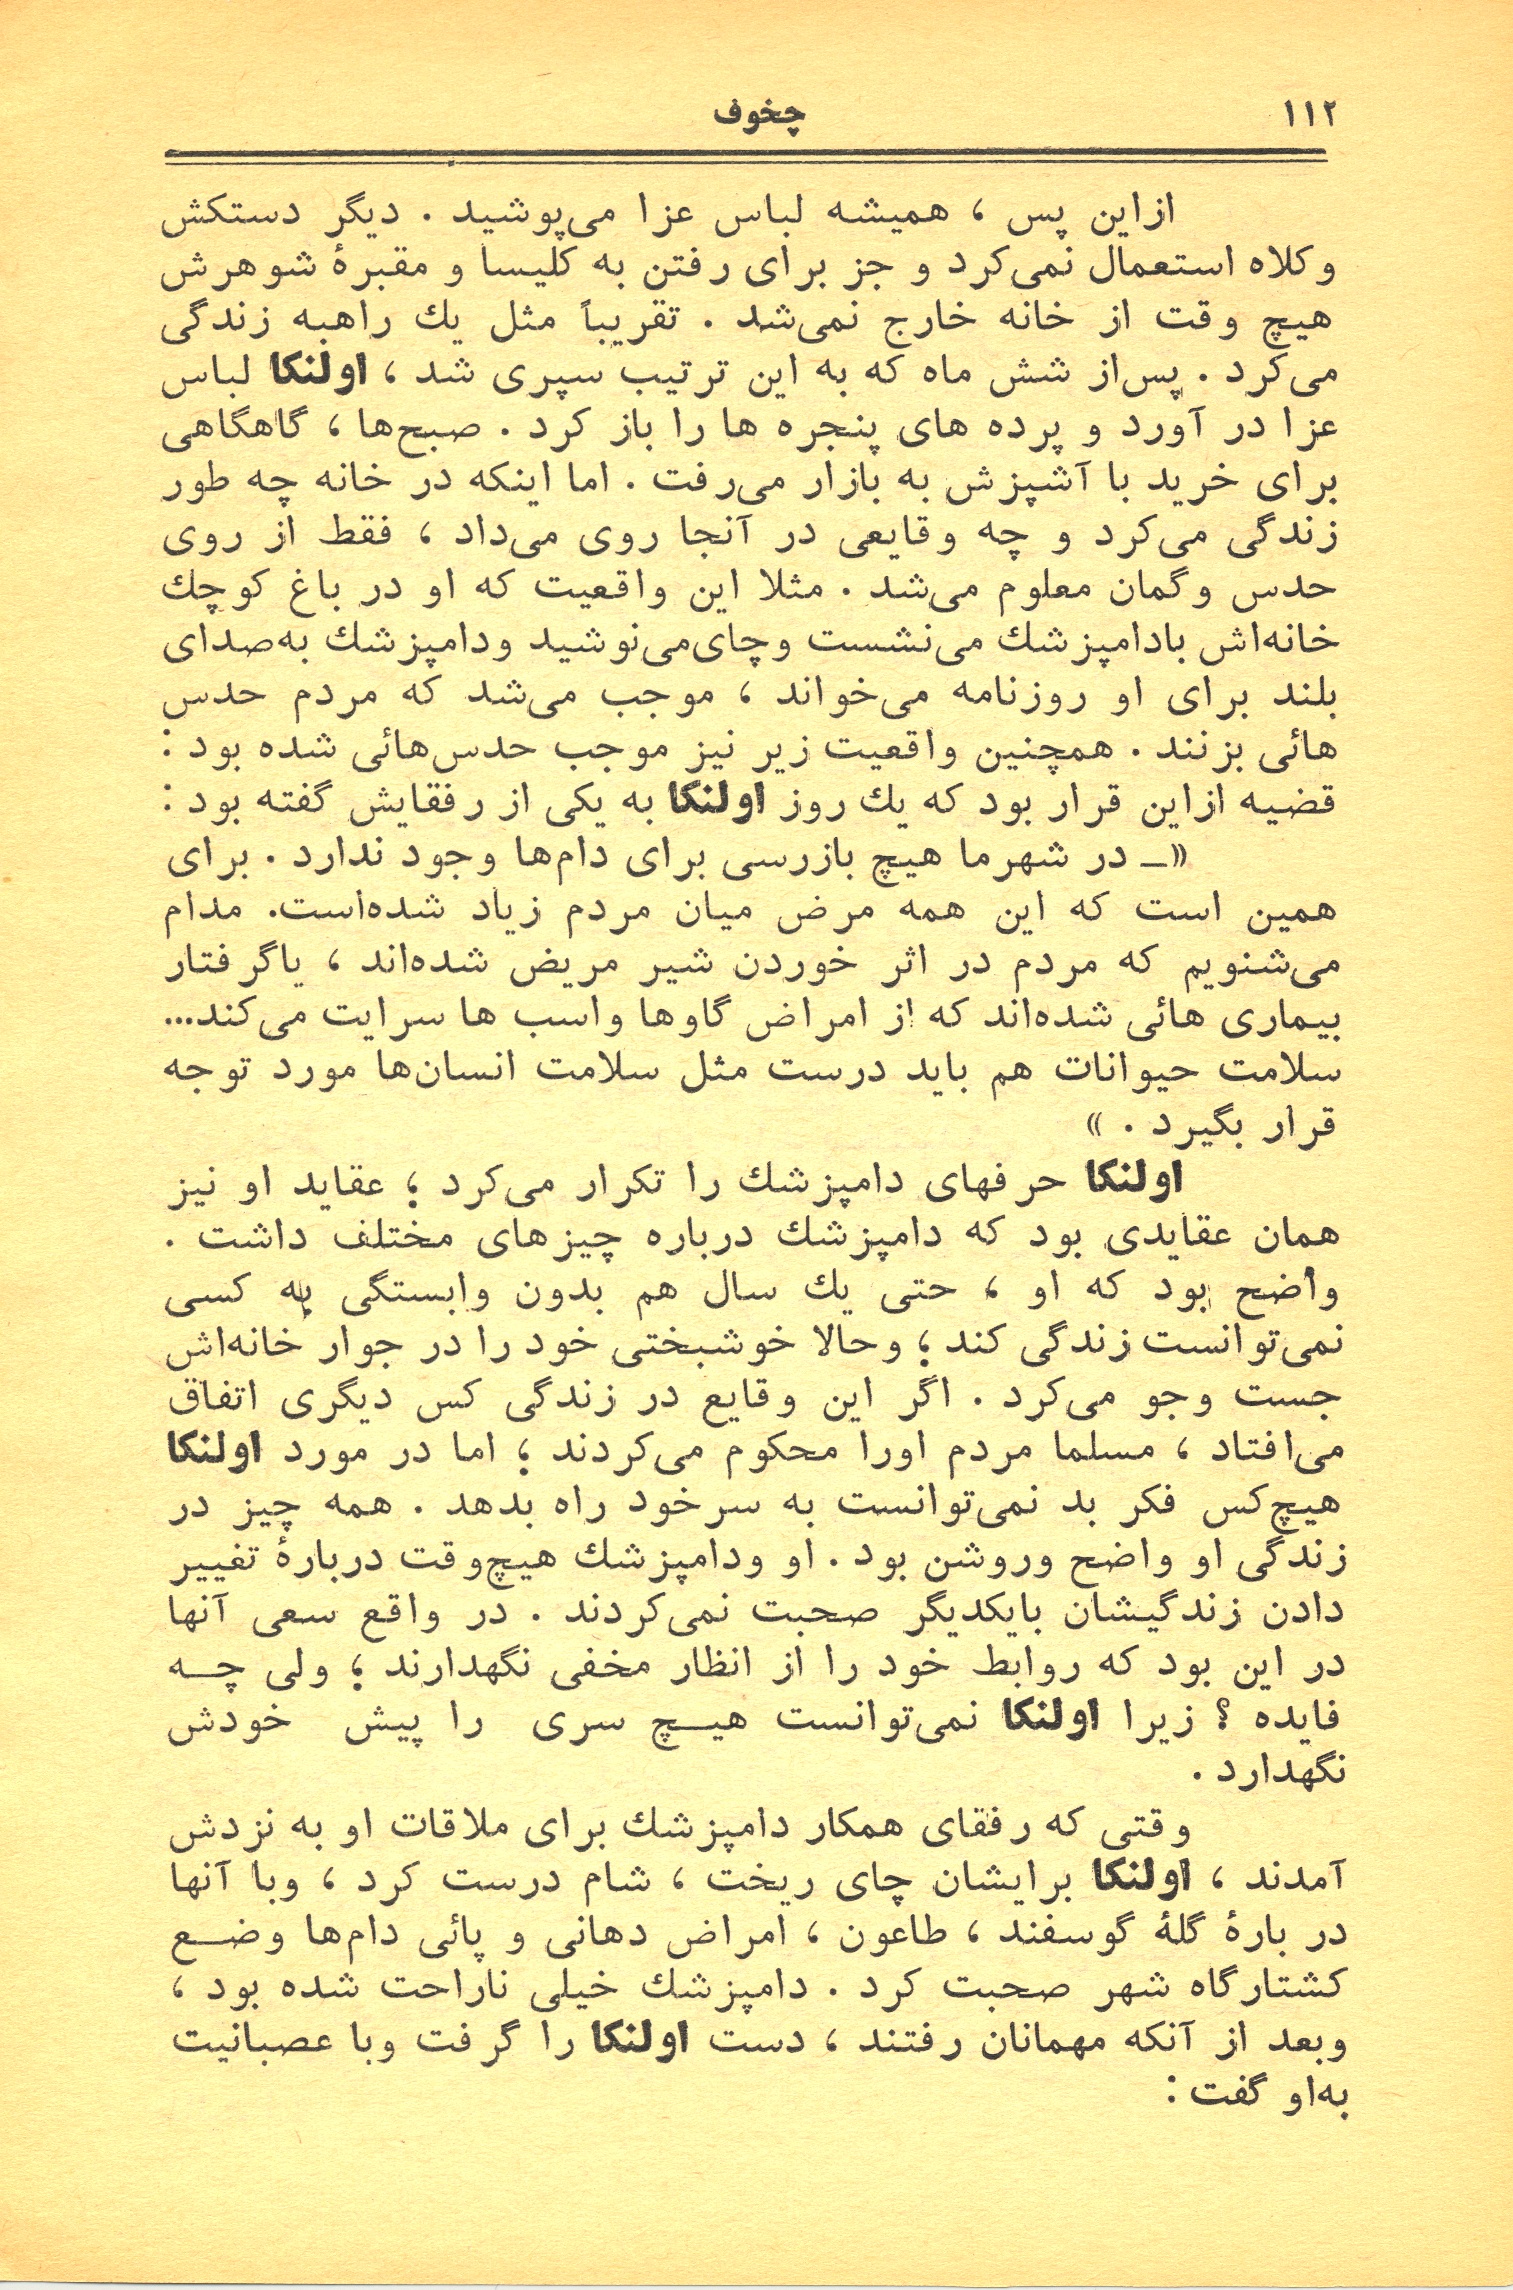 ۱۱۲
چخوف
ازاین پس ، همیشه لباس عزا می‌پوشید . دیگر دستکش
وکلاه استعمال نمی‌کرد و جز برای رفتن به کلیسا و مقبرهٔ شوهرش
هیچ وقت از خانه خارج نمی‌شد . تقریباً مثل یك راهبه زندگی
می‌کرد . پس‌از شش ماه که به این ترتیب سپری شد ، اولنکا لباس
عزا در آورد و پرده های پنجره ها را باز کرد . صبح‌ها ، گاهگاهی
برای خرید با آشپزش به بازار می‌رفت . اما اینکه در خانه چه طور
زندگی می‌کرد و چه وقایعی در آنجا روی می‌داد ، فقط از روی
حدس وگمان معلوم می‌شد . مثلا این واقعیت که او در باغ کوچك
خانه‌اش بادامپزشك می‌نشست وچای‌می‌نوشید ودامپزشك به‌صدای
بلند برای او روزنامه می‌خواند ، موجب می‌شد که مردم حدس
هائی بزنند . همچنین واقعیت زیر نیز موجب حدس‌هائی شده بود :
قضیه ازاین قرار بود که یك روز اولنکا به یکی از رفقایش گفته بود :
«ـ در شهرما هیچ بازرسی برای دام‌ها وجود ندارد . برای
همین است که این همه مرض میان مردم زیاد شده‌است. مدام
می‌شنویم که مردم در اثر خوردن شیر مریض شده‌اند ، یاگرفتار
بیماری هائی شده‌اند که از امراض گاوها واسب ها سرایت می‌کند...
سلامت حیوانات هم باید درست مثل سلامت انسان‌ها مورد توجه
قرار بگیرد . »
اولنکا حرفهای دامپزشك را تکرار می‌کرد ؛ عقاید او نیز
همان عقایدی بود که دامپزشك درباره چیزهای مختلف داشت .
واضح بود که او ، حتی یك سال هم بدون وابستگی به کسی
نمی‌توانست زندگی کند ؛ وحالا خوشبختی خود را در جوار خانه‌اش
جست وجو می‌کرد . اگر این وقایع در زندگی کس دیگری اتفاق
می‌افتاد ، مسلما مردم اورا محکوم می‌کردند ؛ اما در مورد اولنکا
هیچ‌کس فکر بد نمی‌توانست به سرخود راه بدهد . همه چیز در
زندگی او واضح وروشن بود . او ودامپزشك هیچ‌وقت دربارهٔ تغییر
دادن زندگیشان بایکدیگر صحبت نمی‌کردند . در واقع سعی آنها
در این بود که روابط خود را از انظار مخفی نگهدارند ؛ ولی چه
فایده ؟ زیرا اولنکا نمی‌توانست هیچ سری را پیش خودش
نگهدارد .
وقتی که رفقای همکار دامپزشك برای ملاقات او به نزدش
آمدند ، اولنکا برایشان چای ریخت ، شام درست کرد ، وبا آنها
در بارهٔ گلهٔ گوسفند ، طاعون ، امراض دهانی و پائی دام‌ها وضع
کشتارگاه شهر صحبت کرد . دامپزشك خیلی ناراحت شده بود ،
وبعد از آنکه مهمانان رفتند ، دست اولنکا را گرفت وبا عصبانیت
به‌او گفت :